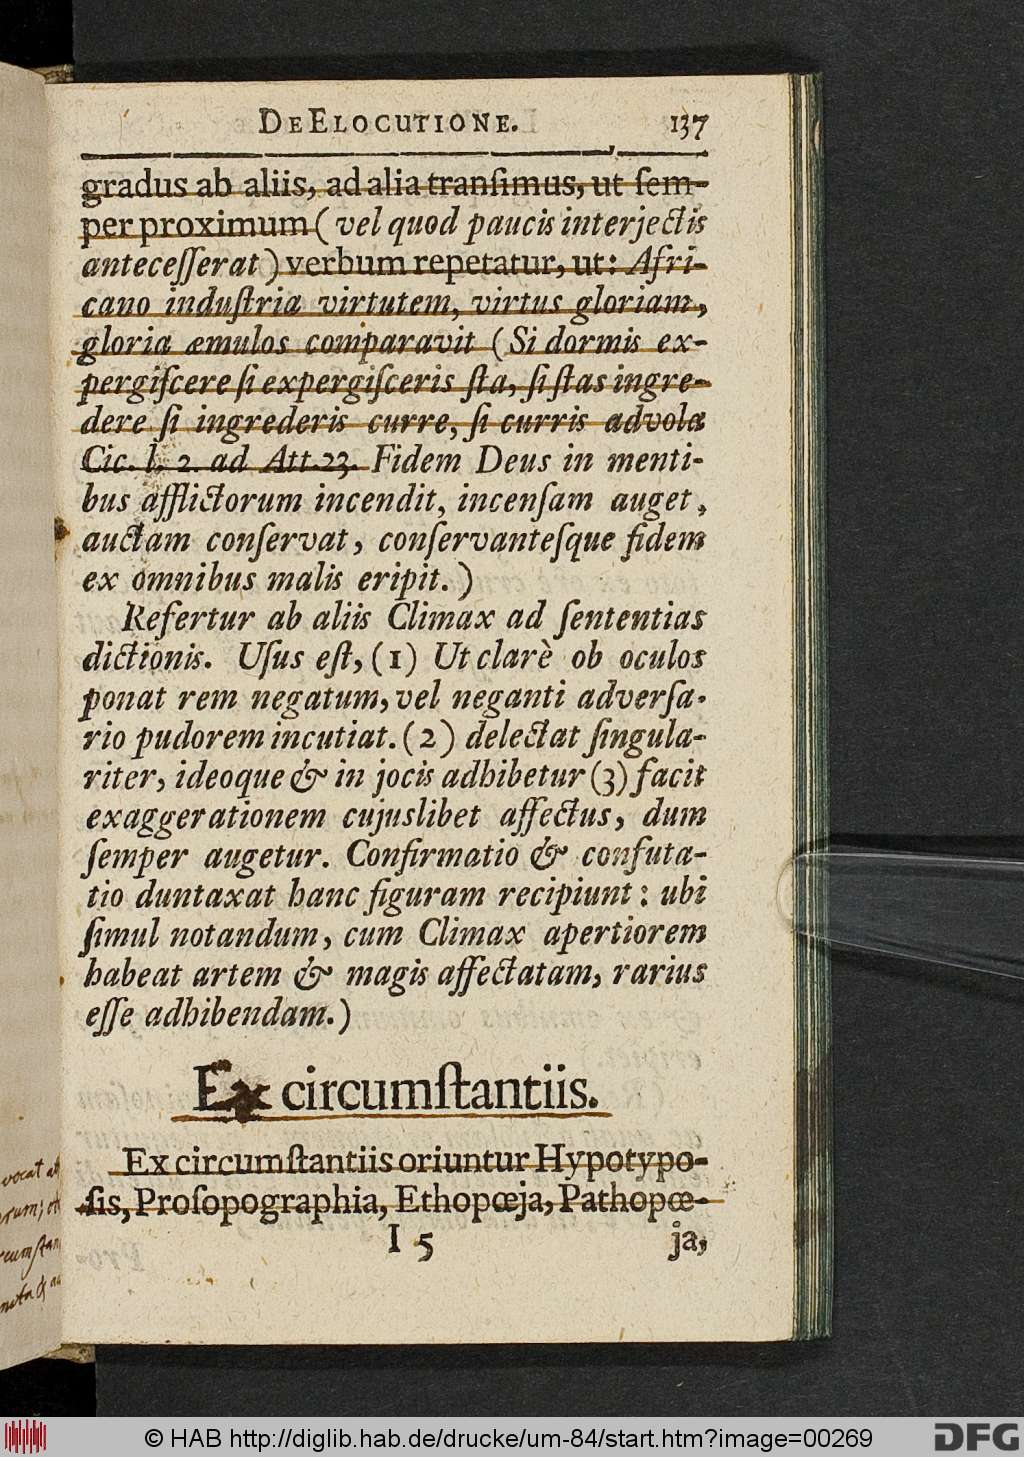 DE ELOCUTIONE. 137
gradus ab aliis, ad alia tranſimus, ut ſem-
per proximum ( vel quod paucis interjectis
anteceſſerat ) verbum repetatur, ut: Afri-
cano induſtria virtutem, virtus gloriam,
gloria æmulos comparavit ( Si dormis ex-
pergiſcere ſi expergiſceris ſta, ſi ſtas ingre-
dere ſi ingrederis curre, ſi curris advola
Cic. l. 2. ad Att. 23. Fidem Deus in menti-
bus afflictorum incendit, incenſam auget,
auctam conſervat, conſervantesque fidem
ex omnibus malis eripit. )
Refertur ab aliis Climax ad ſententias
dictionis. Uſus eſt, (1) Ut clarè ob oculos
ponat rem negatum, vel neganti adverſa-
rio pudorem incutiat. (2) delectat ſingula-
riter, ideoque & in jocis adhibetur (3) facit
exaggerationem cujuslibet affectus, dum
ſemper augetur. Confirmatio & confuta-
tio duntaxat hanc figuram recipiunt: ubi
ſimul notandum, cum Climax apertiorem
habeat artem & magis affectatam, rarius
eſſe adhibendam.)
Ex circumſtantiis.
Ex circumſtantiis oriuntur Hypotypo-
ſis, Proſopographia, Ethopœja, Pathopœ-
I 5 ja,
vocat
© HAB http://diglib.hab.de/drucke/um-84/start.htm?image=00269 DFG